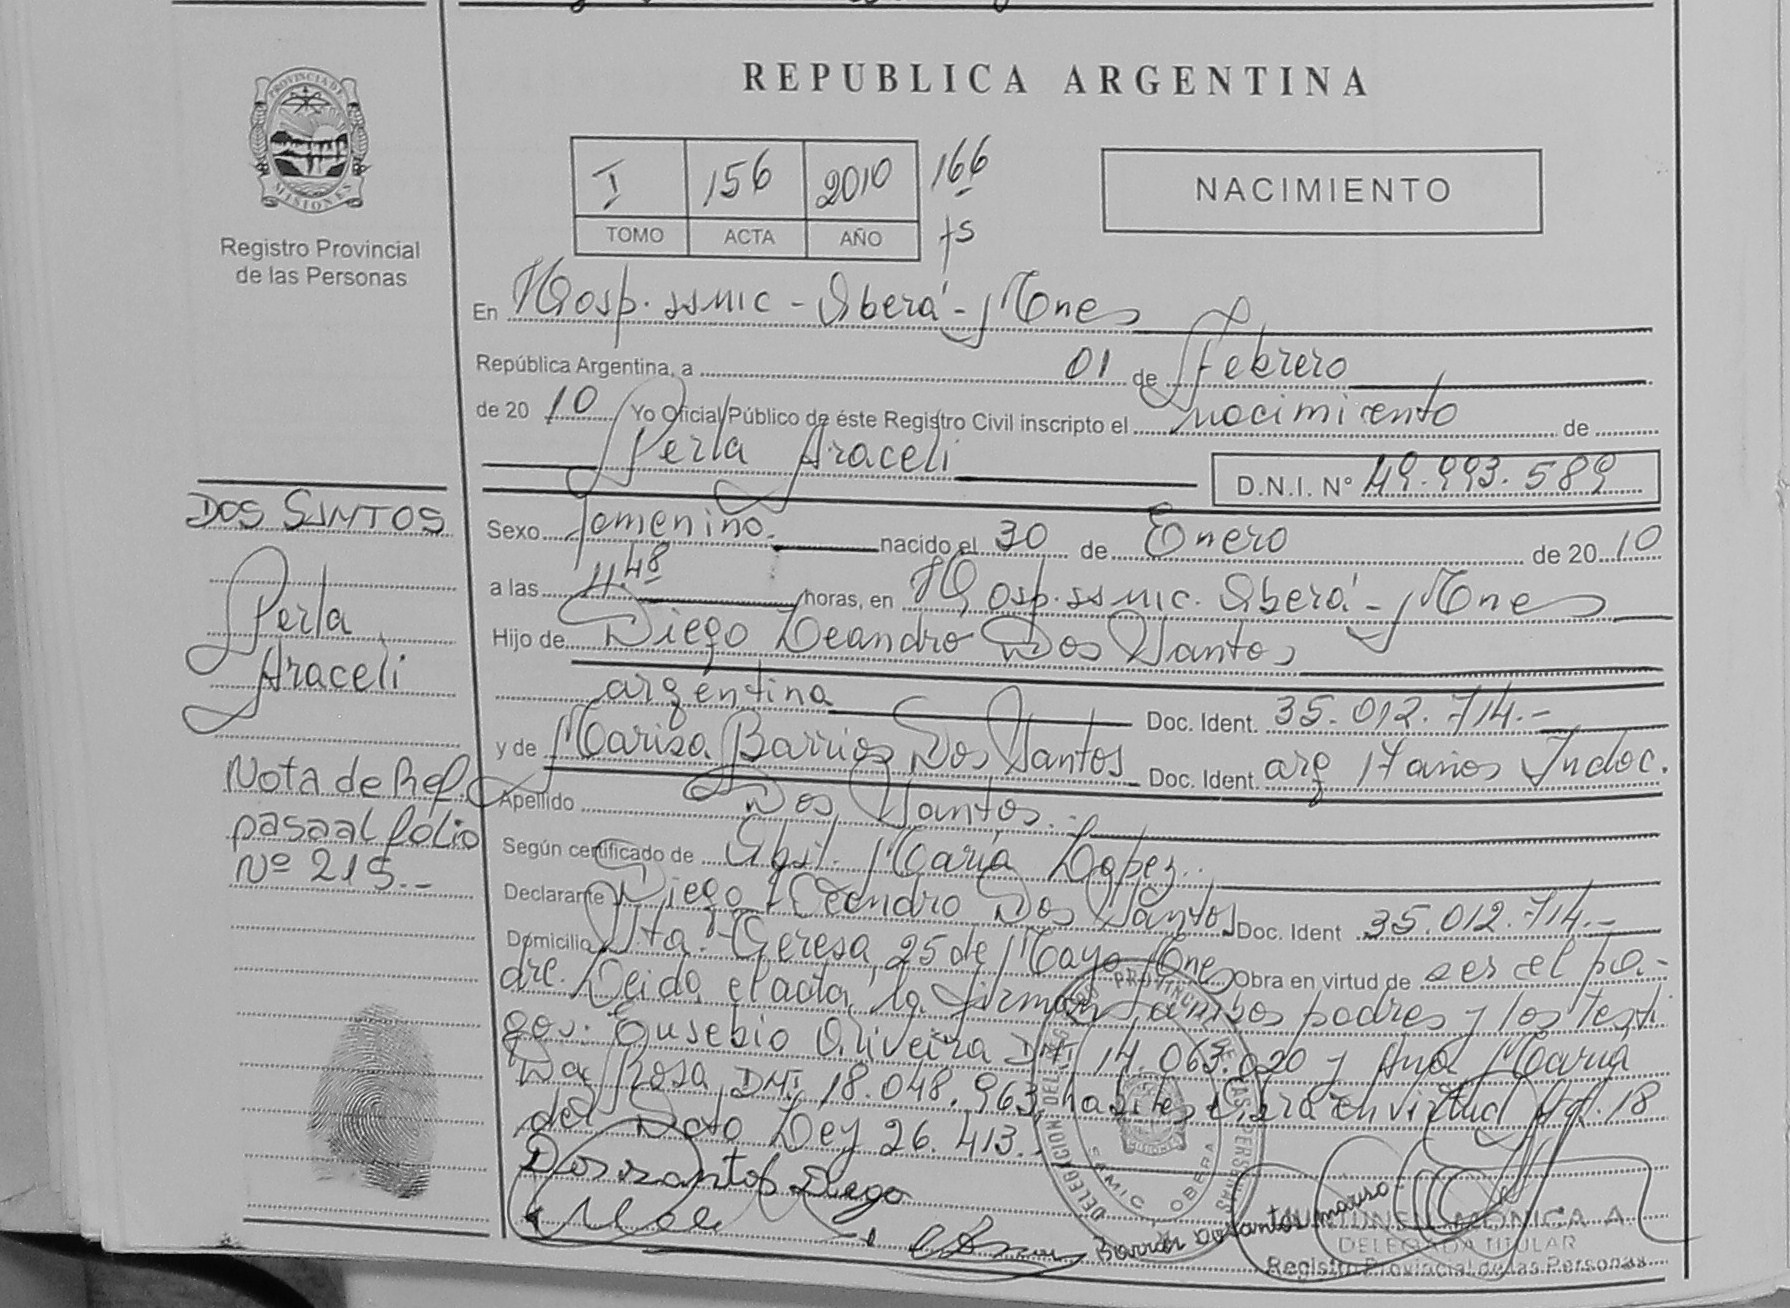 REPUBLICA ARGENTINA
PROVINCIA DE
MISIONES
Registro Provincial
de las Personas
I 156 2010 166
TOMO ACTA AÑO fs
NACIMIENTO
En Hosp. SSMIC - Oberá - Mnes
República Argentina, a 01 de Febrero
de 20 10 Yo Oficial Público de éste Registro Civil inscripto el nacimiento de
Perla Araceli
D.N.I. Nº 49.993.589
DOS SANTOS
Perla
Araceli
Nota de Ref.
pasa al folio
Nº 215.-
Sexo femenino. nacido el 30 de Enero de 20 10
a las 11.48 horas, en Hosp. SSMIC. Oberá - Mnes
Hijo de Diego Leandro Dos Santos
argentina Doc. Ident. 35.012.714.-
y de Marisa Barrios Dos Santos Doc. Ident. arg 17 años Indoc.
Apellido Dos Santos.-
Según certificado de Obst. María Lopez.
Declarante Diego Leandro Dos Santos Doc. Ident 35.012.714.-
Domicilio Sta. Teresa, 25 de Mayo Mnes Obra en virtud de ser el pa-
dre. Leida el acta, la firman ambos padres y los testi
gos: Eusebio Oliveira DNI 14.063.020 y Ana María
Da Rosa DNI 18.048.963, obra en virtud Art. 18
del Dcto Ley 26.413.
Dos santos Diego
Barrios Dosantos marisa
MONICA A
DELEGADA TITULAR
Registro Provincial de las Personas
DELEGACION
SAMIC, OBERA